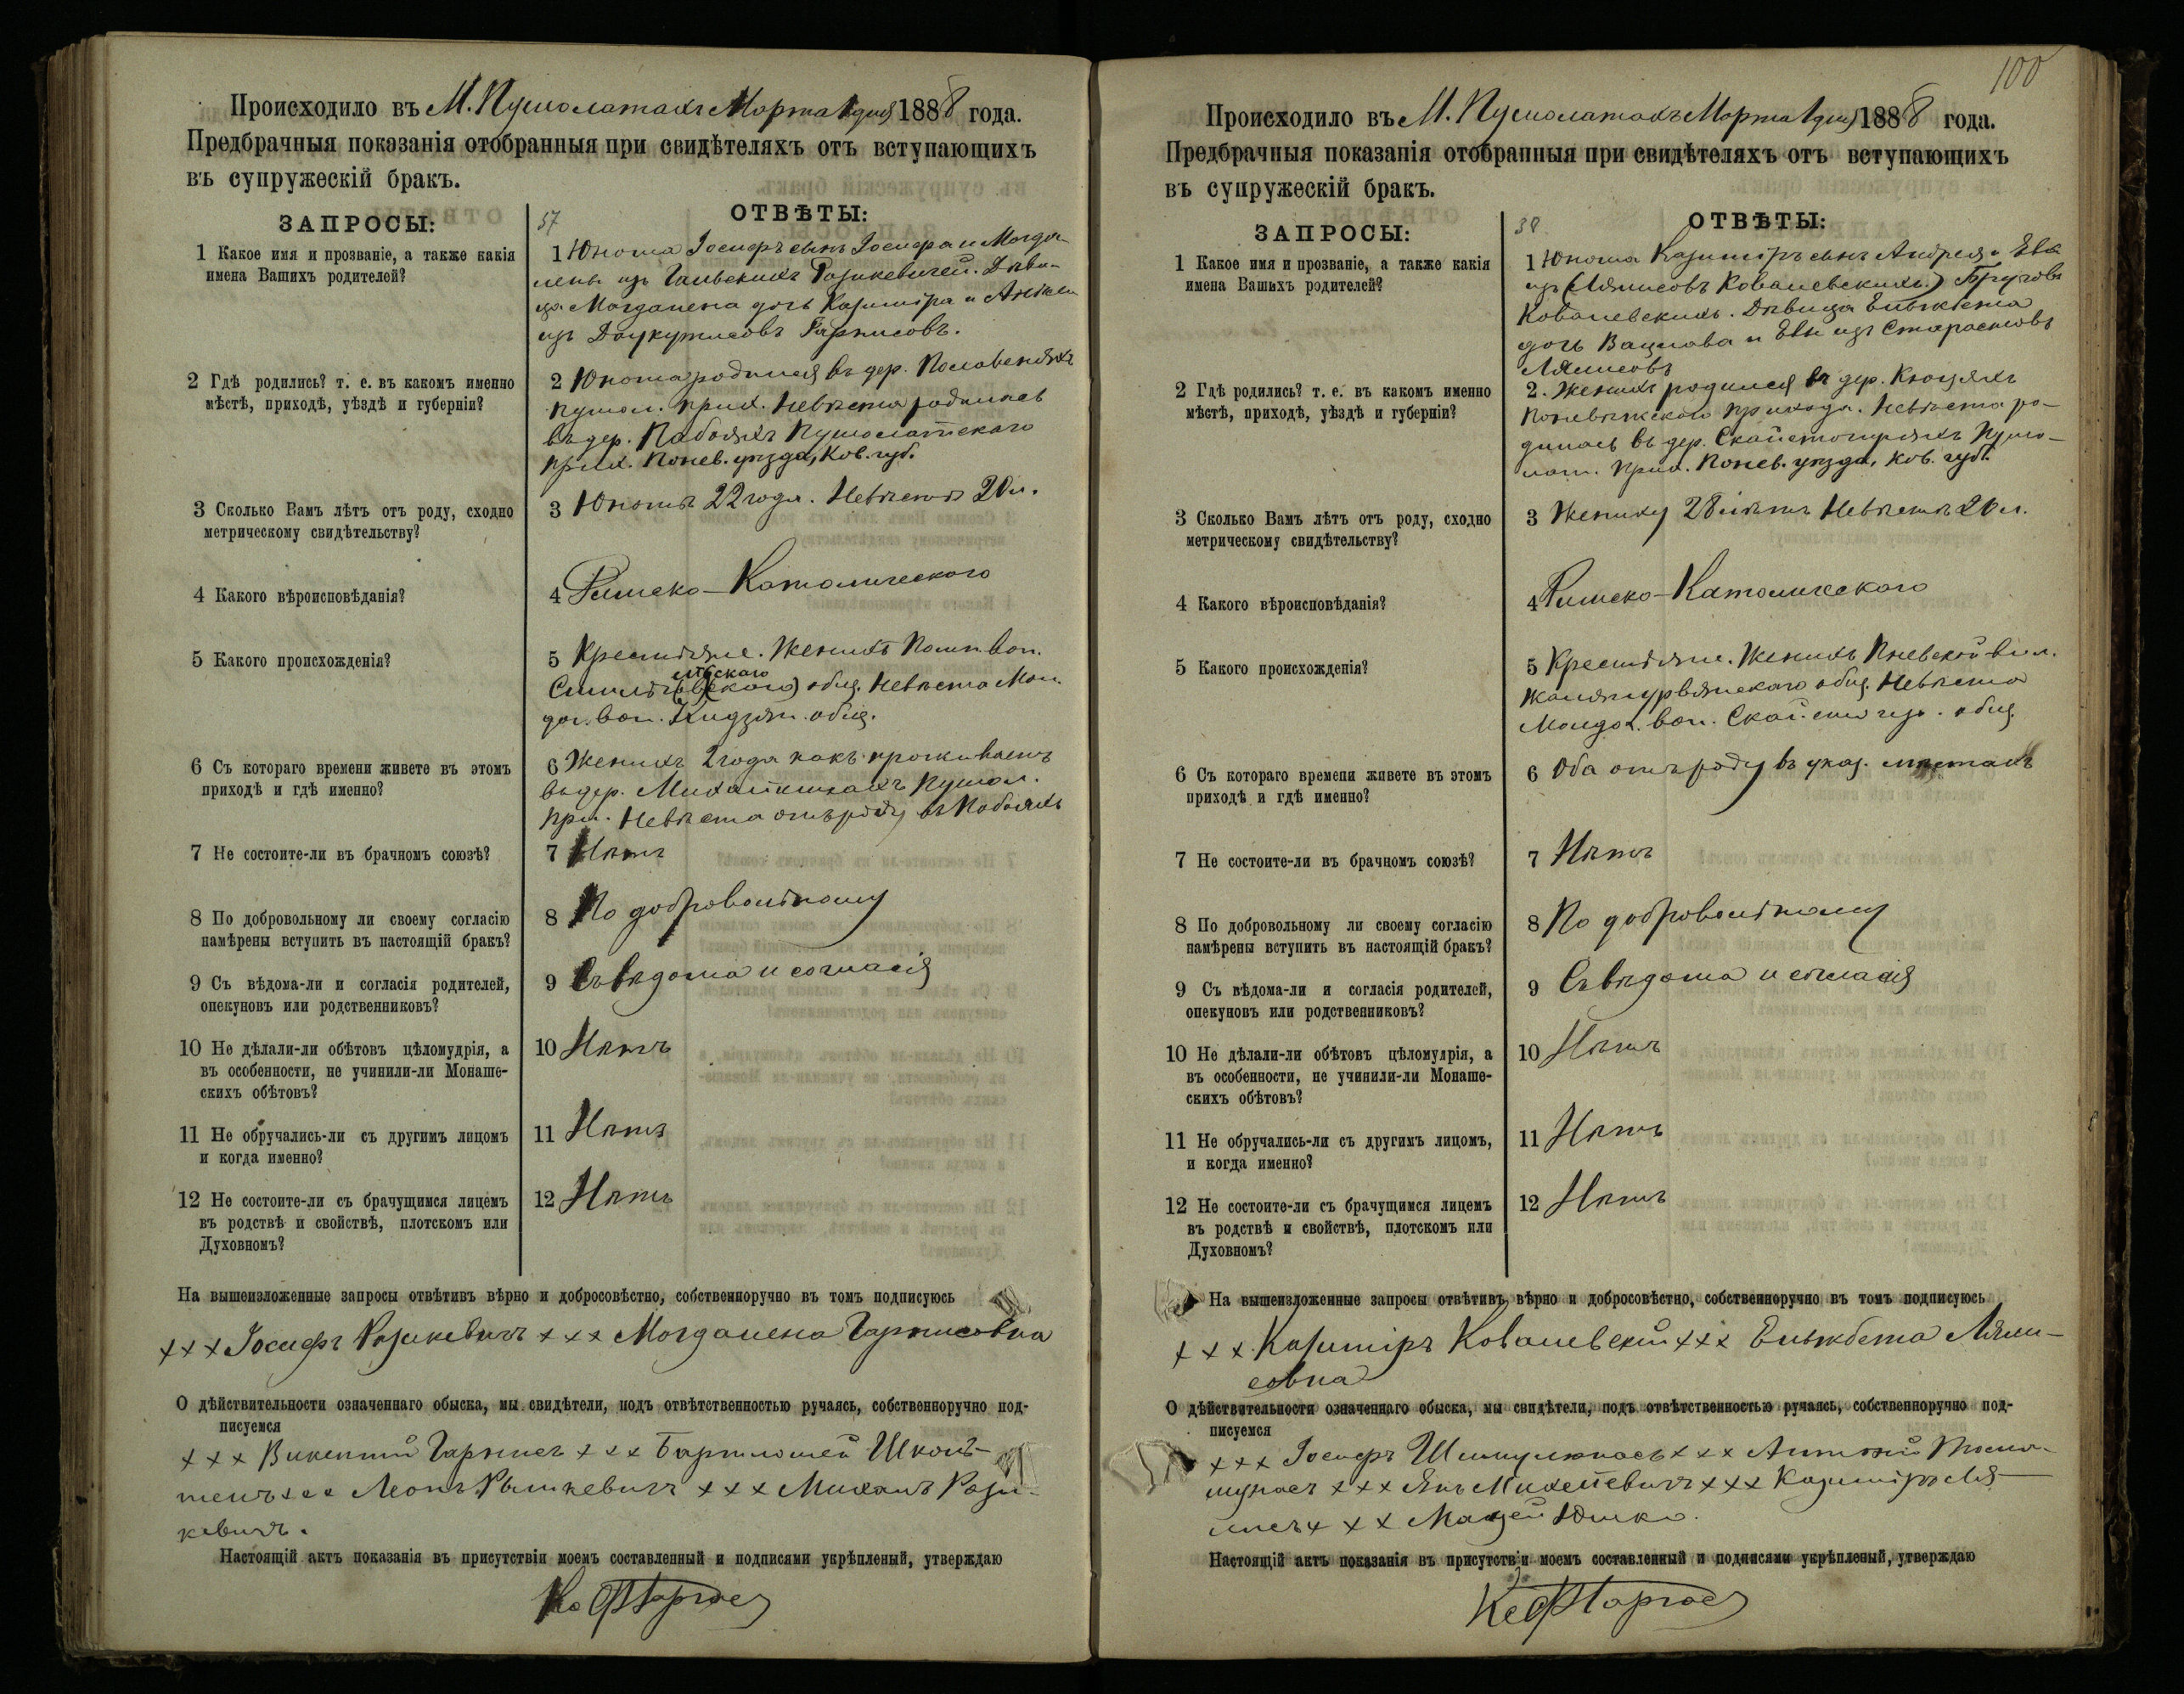 Происходило въ М. Пушолатахъ Марта 1 дня 1888 года.
Предбрачныя показанія отобранныя при свидѣтеляхъ отъ вступающихъ
въ супружескій бракъ.
ЗАПРОСЫ:
1 Какое имя и прозваніе, а также какія
имена Вашихъ родителей?
2 Гдѣ родились? т. е. въ какомъ именно
мѣстѣ, приходѣ, уѣздѣ и губерніи?
3 Сколько Вамъ лѣтъ отъ роду, сходно
метрическому свидѣтельству?
4 Какого вѣроисповѣданія?
5 Какого происхожденія?
6 Съ котораго времени живете въ этомъ
приходѣ и гдѣ именно?
7 Не состоите-ли въ брачномъ союзѣ?
8 По добровольному ли своему согласію
намѣрены вступить въ настоящій бракъ?
9 Съ вѣдома-ли и согласія родителей,
опекуновъ или родственниковъ?
10 Не дѣлали-ли обѣтовъ цѣломудрія, а
въ особенности, не учинили-ли Монаше-
скихъ обѣтовъ?
11 Не обручались-ли съ другимъ лицомъ
и когда именно?
12 Не состоите-ли съ брачущимся лицемъ
въ родствѣ и свойствѣ, плотскомъ или
Духовномъ?
37
ОТВѢТЫ:
1 Юноша Іосифъ сынъ Іосифа и Магда-
лены изъ Разикевичей. Дѣви-
ца Магдалена дочь Казиміра и
изъ Даукутисовъ Гарнисовъ.
2 Юноша родился въ дер.
Пушол. прих. Невѣста родилась
въ дер. Пабояхъ Пушолатскаго
прих. Понев. уѣзда, Ков. губ.
3 Юношѣ 22 года. Невѣстѣ 20 л.
4 Римско-Католическаго
5 Крестьяне. Женихъ вол.
общ. Невѣста
вол. общ.
6 Женихъ 2 года какъ проживаетъ
въ дер. Пушол.
при. Невѣста отъ роду въ Пабояхъ
7 Нѣтъ
8 По добровольному
9 Съ вѣдома и согласія
10 Нѣтъ
11 Нѣтъ
12 Нѣтъ
На вышеизложенные запросы отвѣтивъ вѣрно и добросовѣстно, собственноручно въ томъ подписуюсь
××× Іосифъ Разикевичъ ××× Магдалена Гарнисовна
О дѣйствительности означеннаго обыска, мы свидѣтели, подъ отвѣтственностью ручаясь, собственноручно под-
писуемся
××× Викентій Гарнисъ ××× Бартломей
××× Леонъ ××× Михаилъ Рази-
кевичъ.
Настоящій актъ показанія въ присутствіи моемъ составленный и подписями укрѣпленый, утверждаю
100
Происходило въ М. Пушолатахъ Марта 1 дня 1888 года.
Предбрачныя показанія отобранныя при свидѣтеляхъ отъ вступающихъ
въ супружескій бракъ.
ЗАПРОСЫ:
1 Какое имя и прозваніе, а также какія
имена Вашихъ родителей?
2 Гдѣ родились? т. е. въ какомъ именно
мѣстѣ, приходѣ, уѣздѣ и губерніи?
3 Сколько Вамъ лѣтъ отъ роду, сходно
метрическому свидѣтельству?
4 Какого вѣроисповѣданія?
5 Какого происхожденія?
6 Съ котораго времени живете въ этомъ
приходѣ и гдѣ именно?
7 Не состоите-ли въ брачномъ союзѣ?
8 По добровольному ли своему согласію
намѣрены вступить въ настоящій бракъ?
9 Съ вѣдома-ли и согласія родителей,
опекуновъ или родственниковъ?
10 Не дѣлали-ли обѣтовъ цѣломудрія, а
въ особенности, не учинили-ли Монаше-
скихъ обѣтовъ?
11 Не обручались-ли съ другимъ лицомъ,
и когда именно?
12 Не состоите-ли съ брачущимся лицемъ
въ родствѣ и свойствѣ, плотскомъ или
Духовномъ?
38
ОТВѢТЫ:
1 Юноша Казиміръ сынъ Андрея и Евы
изъ
Ковалевскихъ. Дѣвица Ельжбета
дочь Вацлава и Евы изъ
Лямсовъ
2. Женихъ родился въ дер.
Поневѣжскаго прихода. Невѣста ро-
дилась въ дер. Пушо-
лат. прих. Понев. уѣзда, Ков. губ.
3 Жениху 28 лѣтъ Невѣстѣ 20 л.
4 Римско-Католическаго
5 Крестьяне. Женихъ вол.
общ. Невѣста
вол. общ.
6 Оба отъ роду въ указ. мѣстахъ
7 Нѣтъ
8 По добровольному
9 Съ вѣдома и согласія
10 Нѣтъ
11 Нѣтъ
12 Нѣтъ
На вышеизложенные запросы отвѣтивъ вѣрно и добросовѣстно, собственноручно въ томъ подписуюсь
××× Казиміръ Ковалевскій ××× Ельжбета Лями-
совна
О дѣйствительности означеннаго обыска, мы свидѣтели, подъ отвѣтственностью ручаясь, собственноручно под-
писуемся
××× Іосифъ ××× Антоній
××× Янъ ××× Казиміръ Ля-
мсъ ××× Мацей Юшко.
Настоящій актъ показанія въ присутствіи моемъ составленный и подписями укрѣпленый, утверждаю